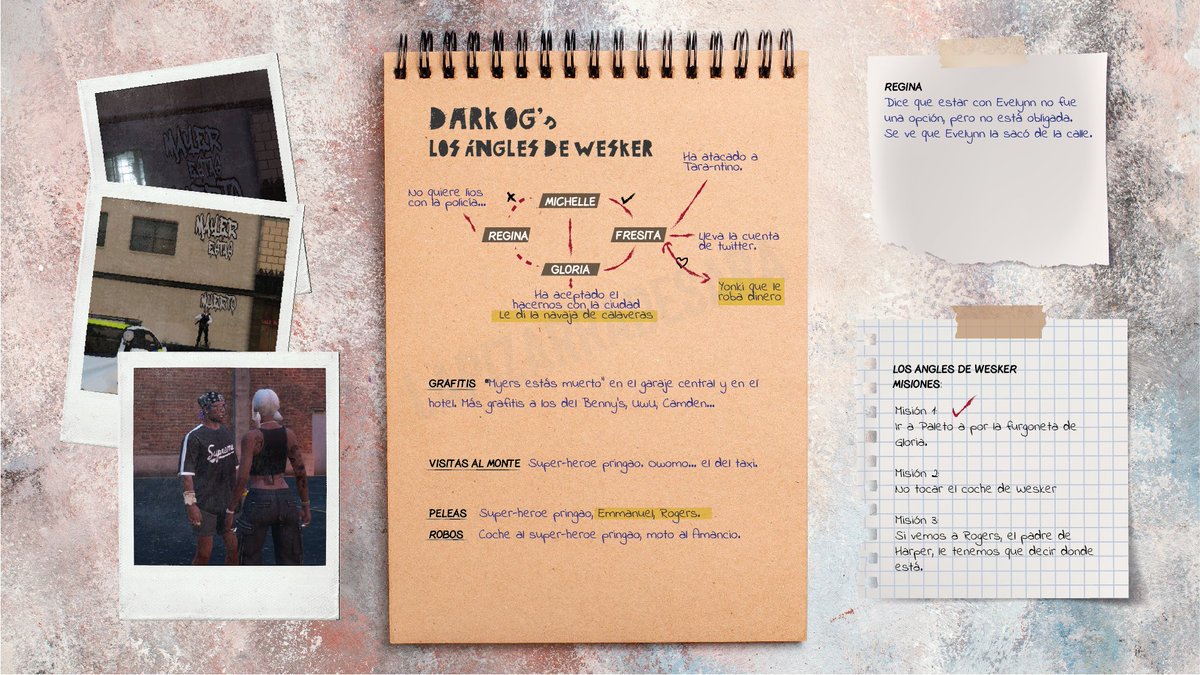 MALER
ESTÁS
MUERTO
MALER
ESTÁS
MUERTO
Supreme
DARK OG's
LOS ÁNGLES DE WESKER
Ha atacado a
Tara-ntino.
No quiere lios
con la policía...
MICHELLE
REGINA
FRESITA
Lleva la cuenta
de twitter.
GLORIA
Yonki que le
roba dinero
Ha aceptado el
hacernos con la ciudad
Le di la navaja de calaveras
GRAFITIS "Myers estás muerto" en el garaje central y en el
hotel. Más grafitis a los del Benny's, UwU, Camden...
VISITAS AL MONTE Super-heroe pringao. Owomo... el del taxi.
PELEAS Super-heroe pringao, Emmanuel, Rogers.
ROBOS Coche al super-heroe pringao, moto al Amancio.
REGINA
Dice que estar con Evelynn no fue
una opción, pero no está obligada.
Se ve que Evelynn la sacó de la calle.
LOS ÁNGLES DE WESKER
MISIONES:
Misión 1:
Ir a Paleto a por la furgoneta de
Gloria.
Misión 2:
No tocar el coche de Wesker
Misión 3:
Si vemos a Rogers, el padre de
Harper, le tenemos que decir donde
está.